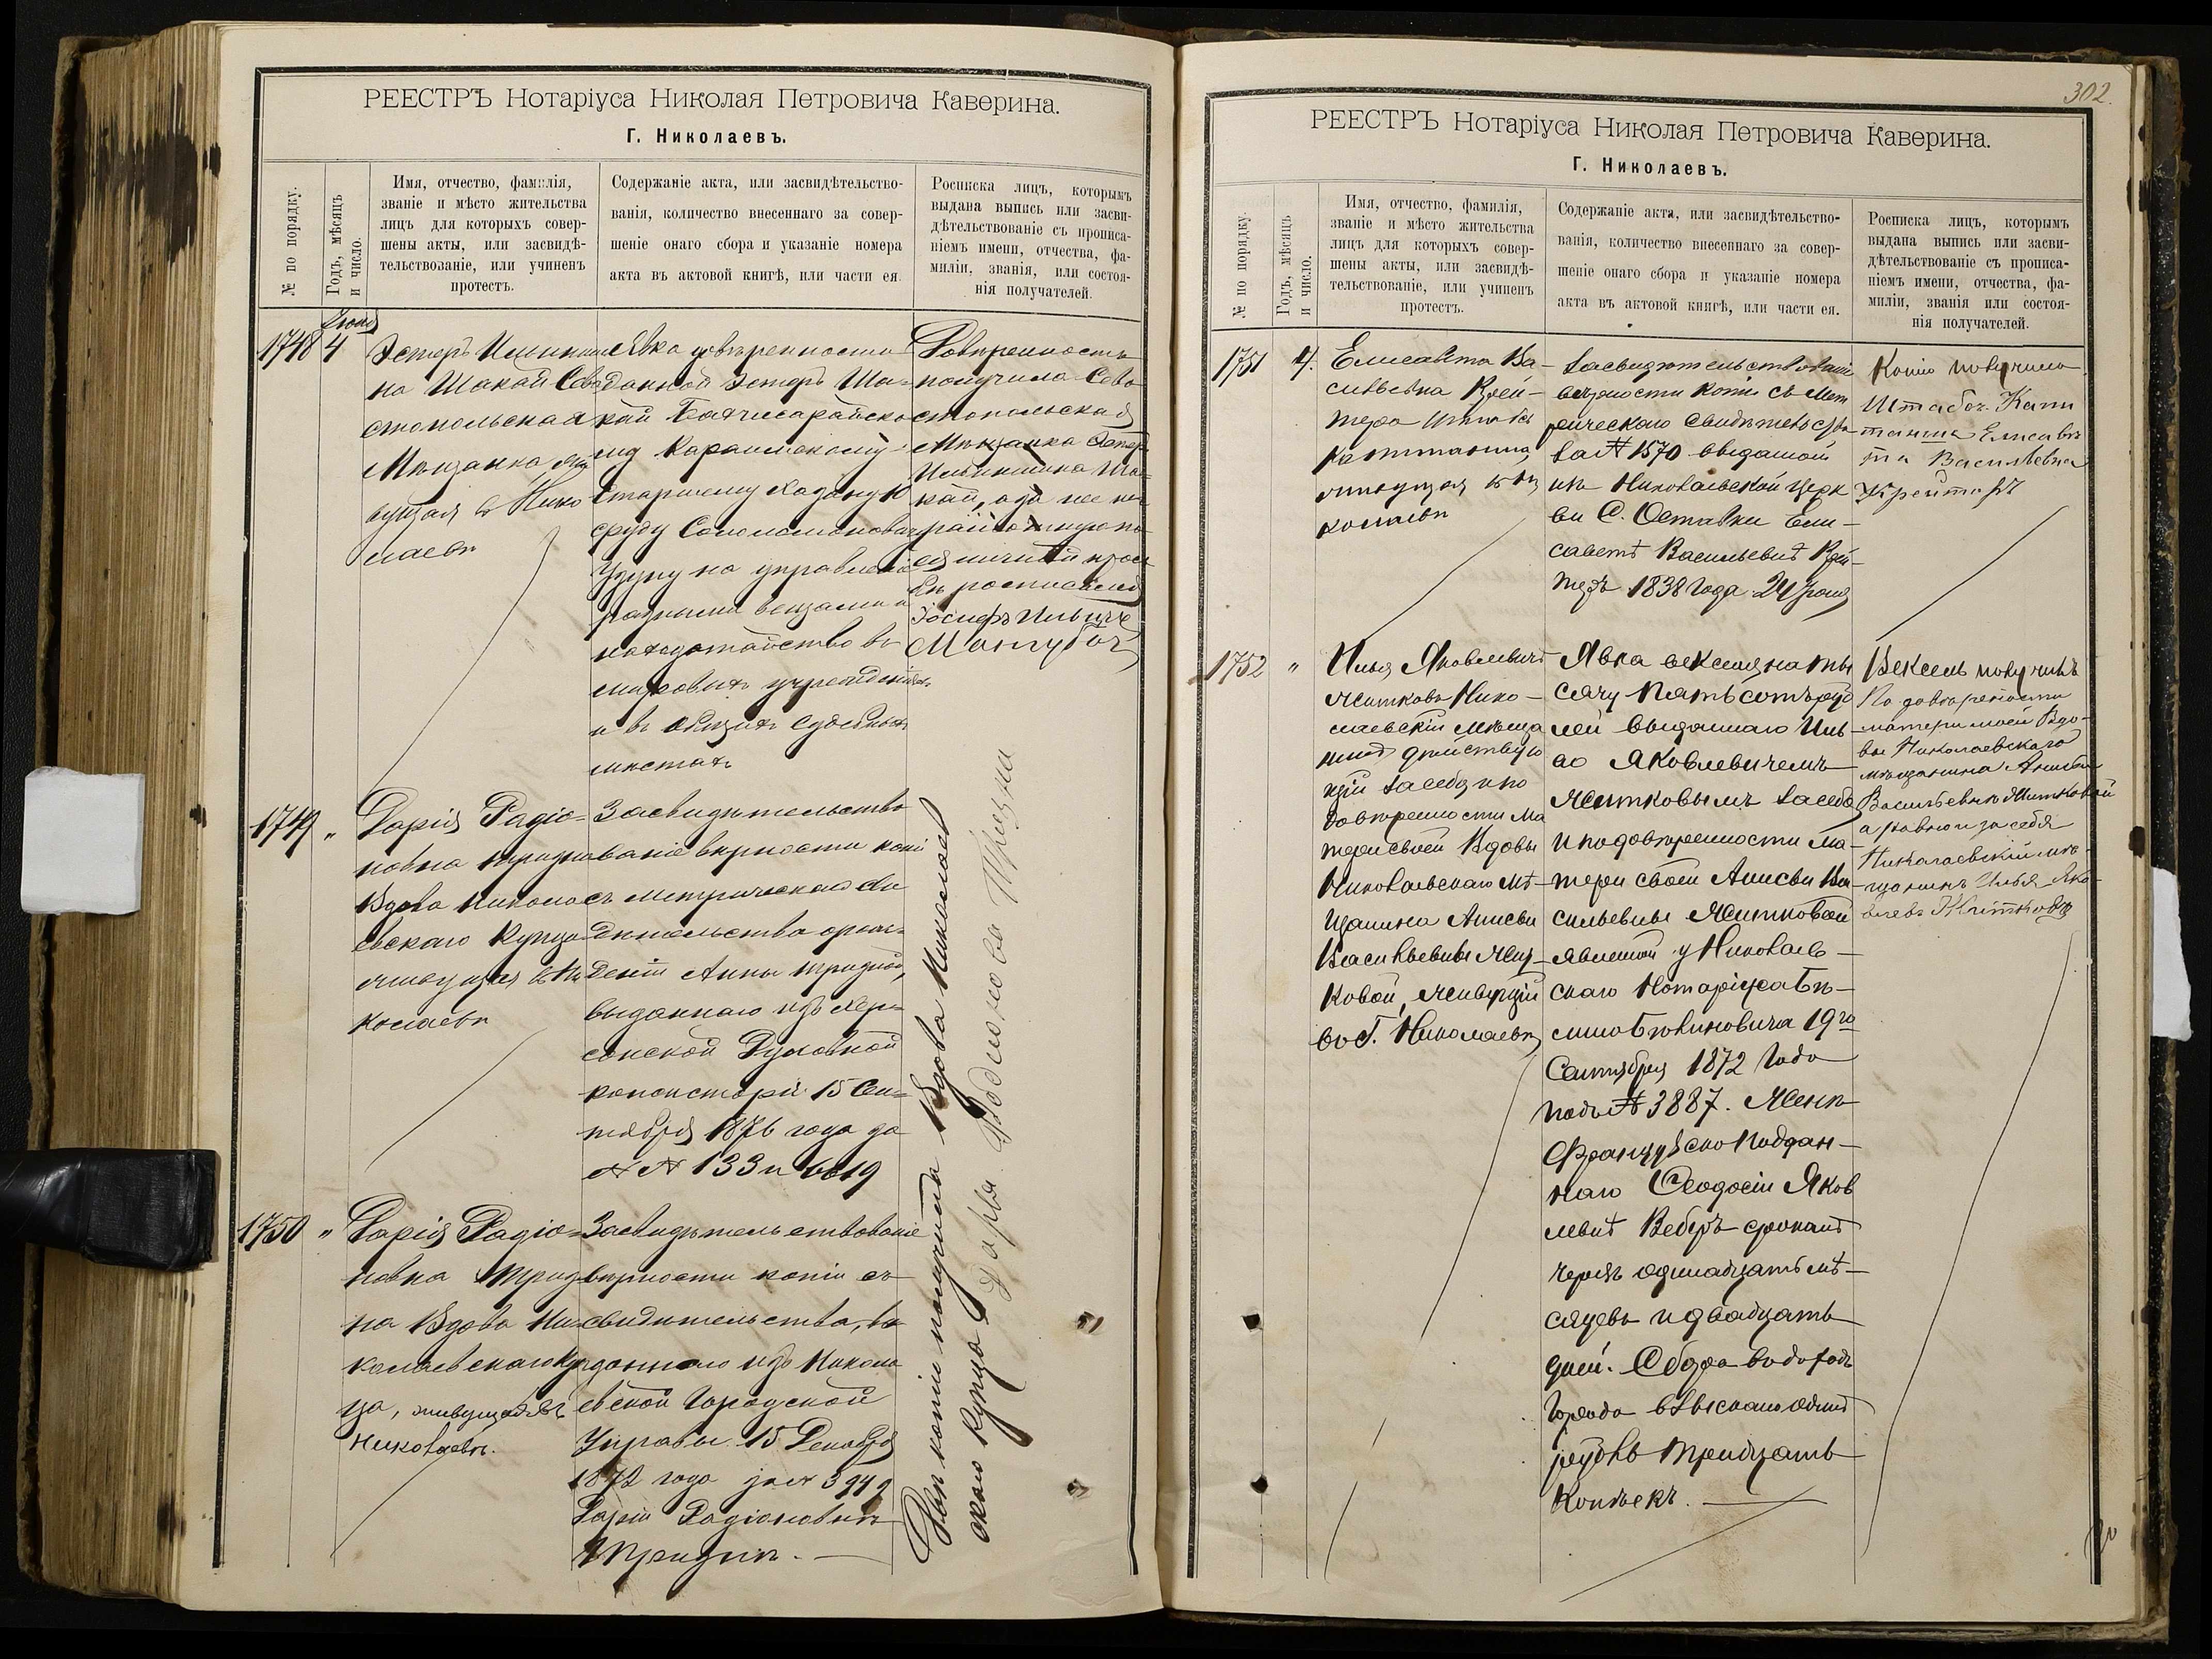 РЕЕСТРЪ Нотаріуса Николая Петровича Каверина.
Г. Николаевъ.
№ по порядку.
Годъ, мѣсяцъ
и число.
Имя, отчество, фамилія,
званіе и мѣсто жительства
лицъ для которыхъ совер-
шены акты, или засвидѣ-
тельствованіе, или учиненъ
протестъ.
Содержаніе акта, или засвидѣтельство-
ванія, количество внесеннаго за совер-
шеніе онаго сбора и указаніе номера
акта въ актовой книгѣ, или части ея.
Росписка лицъ, которымъ
выдана выпись или засви-
дѣтельствованіе съ прописа-
ніемъ имени, отчества, фа-
миліи, званія, или состоя-
нія получателей.
1748
4
Эстеръ
на Шакай Сева
стопольская
Мѣщанка жи
вущая в Нико
лаевѣ
Явка довѣренности
данной Эстеръ Ша=
кай Бахчисарайско
му Караимскому
Старшему Хазану Ю
суфу Соломоновичу
на управленіе
разными вещами и
ходатайство въ
мировыхъ учрежденіяхъ
и въ общихъ судебныхъ
мѣстахъ
Довѣренность
получила Сева
стопольская
Мѣщанка Эстеръ
Ильинишна Ша=
кай, а за нее не
грамотную по
ея личной прось
бѣ росписался
Іосифъ Ильичъ
Мангуби
1749
"
Дарія Радіо=
новна
Вдова Никола
евскаго Купца
живущая въ Ни
колаевѣ
Засвидѣтельство
ваніе вѣрности копіи
съ метрическаго сви
дѣтельства о рож=
деніи Анны
выданнаго изъ Хер=
сонской Духовной
консисторіи 15 Сен=
тября 1876 года за
№ № 133 и 6619
1750
"
Дарія Радіо=
новна
на Вдова Ни=
колаевскаго Куп
ца, живущая въ
Николаевѣ.
Засвидѣтельствованіе
вѣрности копіи съ
свидѣтельства, вы
даннаго изъ Никола
евской Городской
Управы 15 Декабря
1872 года за №
Даріи Радіоновнѣ
Двѣ копіи получила Вдова Николаев
скаго Купца Дарья Родионова
302.
РЕЕСТРЪ Нотаріуса Николая Петровича Каверина.
Г. Николаевъ.
№ по порядку.
Годъ, мѣсяцъ
и число.
Имя, отчество, фамилія,
званіе и мѣсто жительства
лицъ для которыхъ совер-
шены акты, или засвидѣ-
тельствованіе, или учиненъ
протестъ.
Содержаніе акта, или засвидѣтельство-
ванія, количество внесеннаго за совер-
шеніе онаго сбора и указаніе номера
акта въ актовой книгѣ, или части ея.
Росписка лицъ, которымъ
выдана выпись или засви-
дѣтельствованіе съ прописа-
ніемъ имени, отчества, фа-
миліи, званія или состоя-
нія получателей.
1751
4.
Елисавета Ва-
сильевна Крей-
теръ Штабсъ
Капитанша
живущая въ Ни
колаевѣ
Засвидѣтельствованіе
вѣрности копіи съ мет
рическаго свидѣтельства
за № 1570 выданной
изъ Николаевской церк
ви
Ели-
саветѣ Васильевнѣ Крей-
теръ 1838 года 24
Копію получила
Штабсъ. Капи
танша Елисаве
та Васильевна
Крейтеръ
1752
"
Илья Яковлевичъ
Житковъ Нико-
лаевскій мѣща
нинъ дѣйствую
щій за себя и по
довѣренности Ма
тери своей Вдовы
Николаевскаго Мѣ-
щанина Анисьи
Васильевны Жит-
ковой, живущій
въ Г. Николаевѣ
Явка векселя на ты
сячу пятьсотъ руб
лей выданнаго Иль
ею Яковлевичемъ
Житковымъ за себя
и по довѣренности ма-
тери своей Анисьи Ва-
сильевны Житковой
явленной у Николаев-
скаго Нотаріуса
19го
Сентября 1872 года
подъ № 3887. Женѣ
Французско подан-
наго Ѳеодосіи Яков
левнѣ Веберъ срокомъ
черезъ одинадцать мѣ-
сяцевъ и двадцать
дней. Сбора въ доходъ
города взыскано одинъ
рубль тридцать
копѣекъ.
Вексель получилъ
По довѣренности
матери моей Вдо-
вы Николаевскаго
мѣщанина Анисьи
Васильевны Житковой
а равно и за себя
Николаевскій мѣ-
щанинъ Илья Яко-
влевъ Житковъ